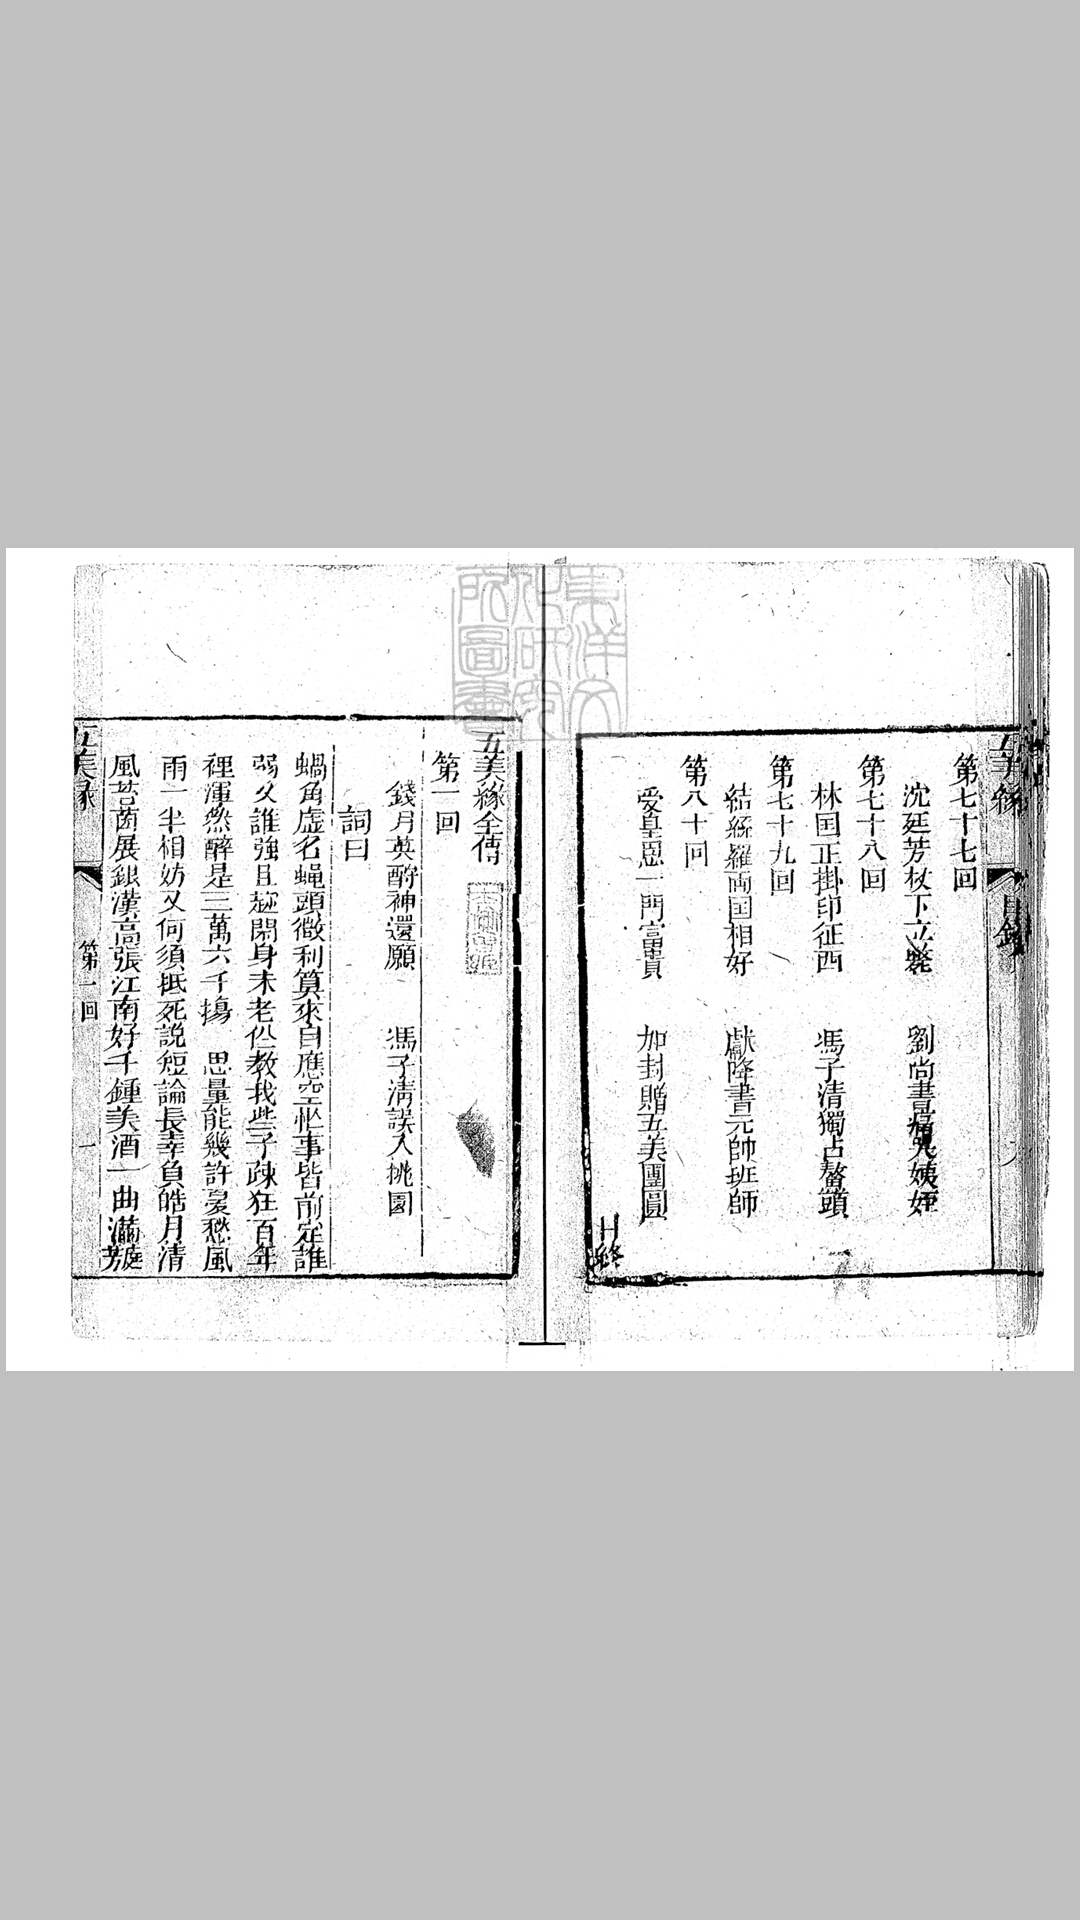 五美緣
目錄
第七十七回
沈廷芳杖下立斃　劉尚書痛哭姨姪
第七十八回
林国正掛印征西　馮子清獨占鰲頭
第七十九回
結絲羅両国相好　献降書元帥班師
第八十回
受皇恩一門富貴　加封贈五美團圓
目終
東洋文化研究所圖書
五美緣全傳
第一回
錢月英酧神還願　馮子清誤入桃園
詞曰
蝸角虛名蝇頭微利算來自應空忙事皆前定誰
弱久誰強且趂閑身未老但教我些子疎狂百年
裡渾然醉是三萬六千塲　思量能幾許憂愁風
雨一半相妨又何須抵死説短論長幸負皓月清
風苔茵展銀漢高張江南好千鍾美酒一曲滿庭芳
五美緣
第一回
一